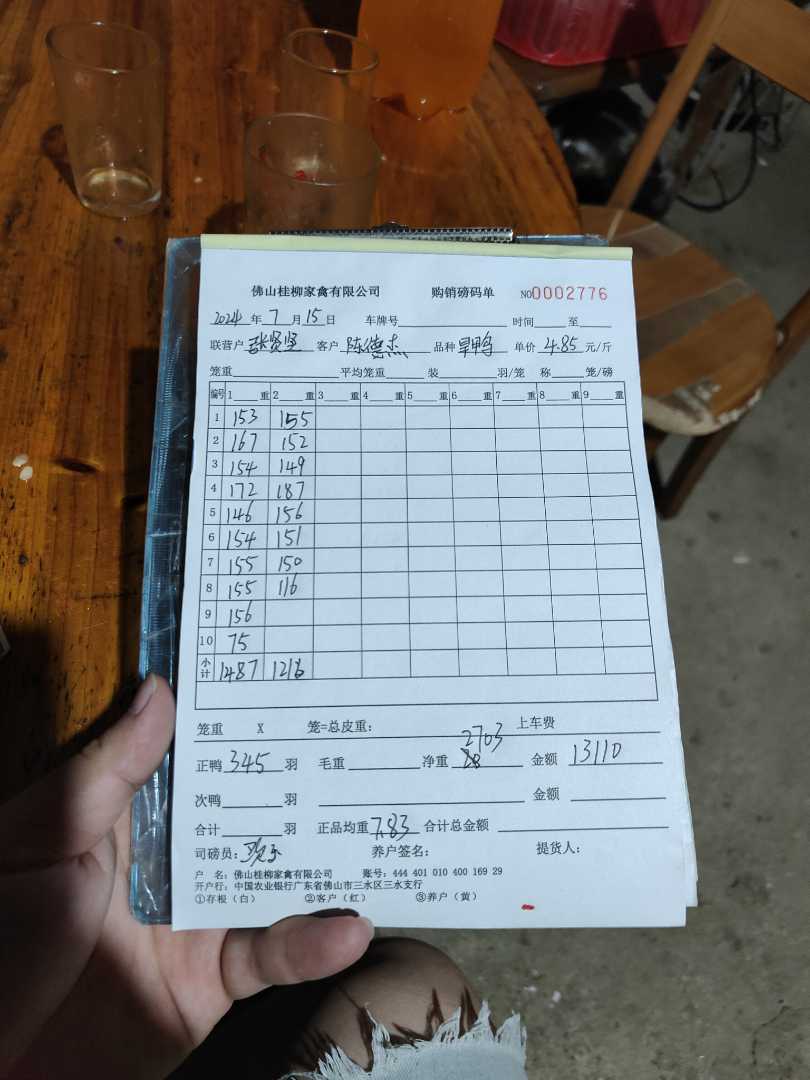 佛山桂柳家禽有限公司 购销磅码单 NO0002776
2024年7月15日 车牌号 时间 至
联营户 张贤坚 客户 陈德杰 品种 旱鸭 单价 4.85 元/斤
笼重 平均笼重 装 羽/笼 称 笼/磅
编号 1 重 2 重 3 重 4 重 5 重 6 重 7 重 8 重 9 重
1 153 155
2 167 152
3 154 149
4 172 187
5 146 156
6 154 151
7 155 150
8 155 116
9 156
10 75
小计 1487 1216
笼重 X 笼=总皮重: 上车费
正鸭 345 羽 毛重 净重 2703 金额 13110
次鸭 羽 金额
合计 羽 正品均重 7.83 合计总金额
司磅员: 养户签名: 提货人:
户 名: 佛山桂柳家禽有限公司 账号: 444 401 010 400 169 29
开户行: 中国农业银行广东省佛山市三水区三水支行
①存根(白) ②客户(红) ③养户(黄)